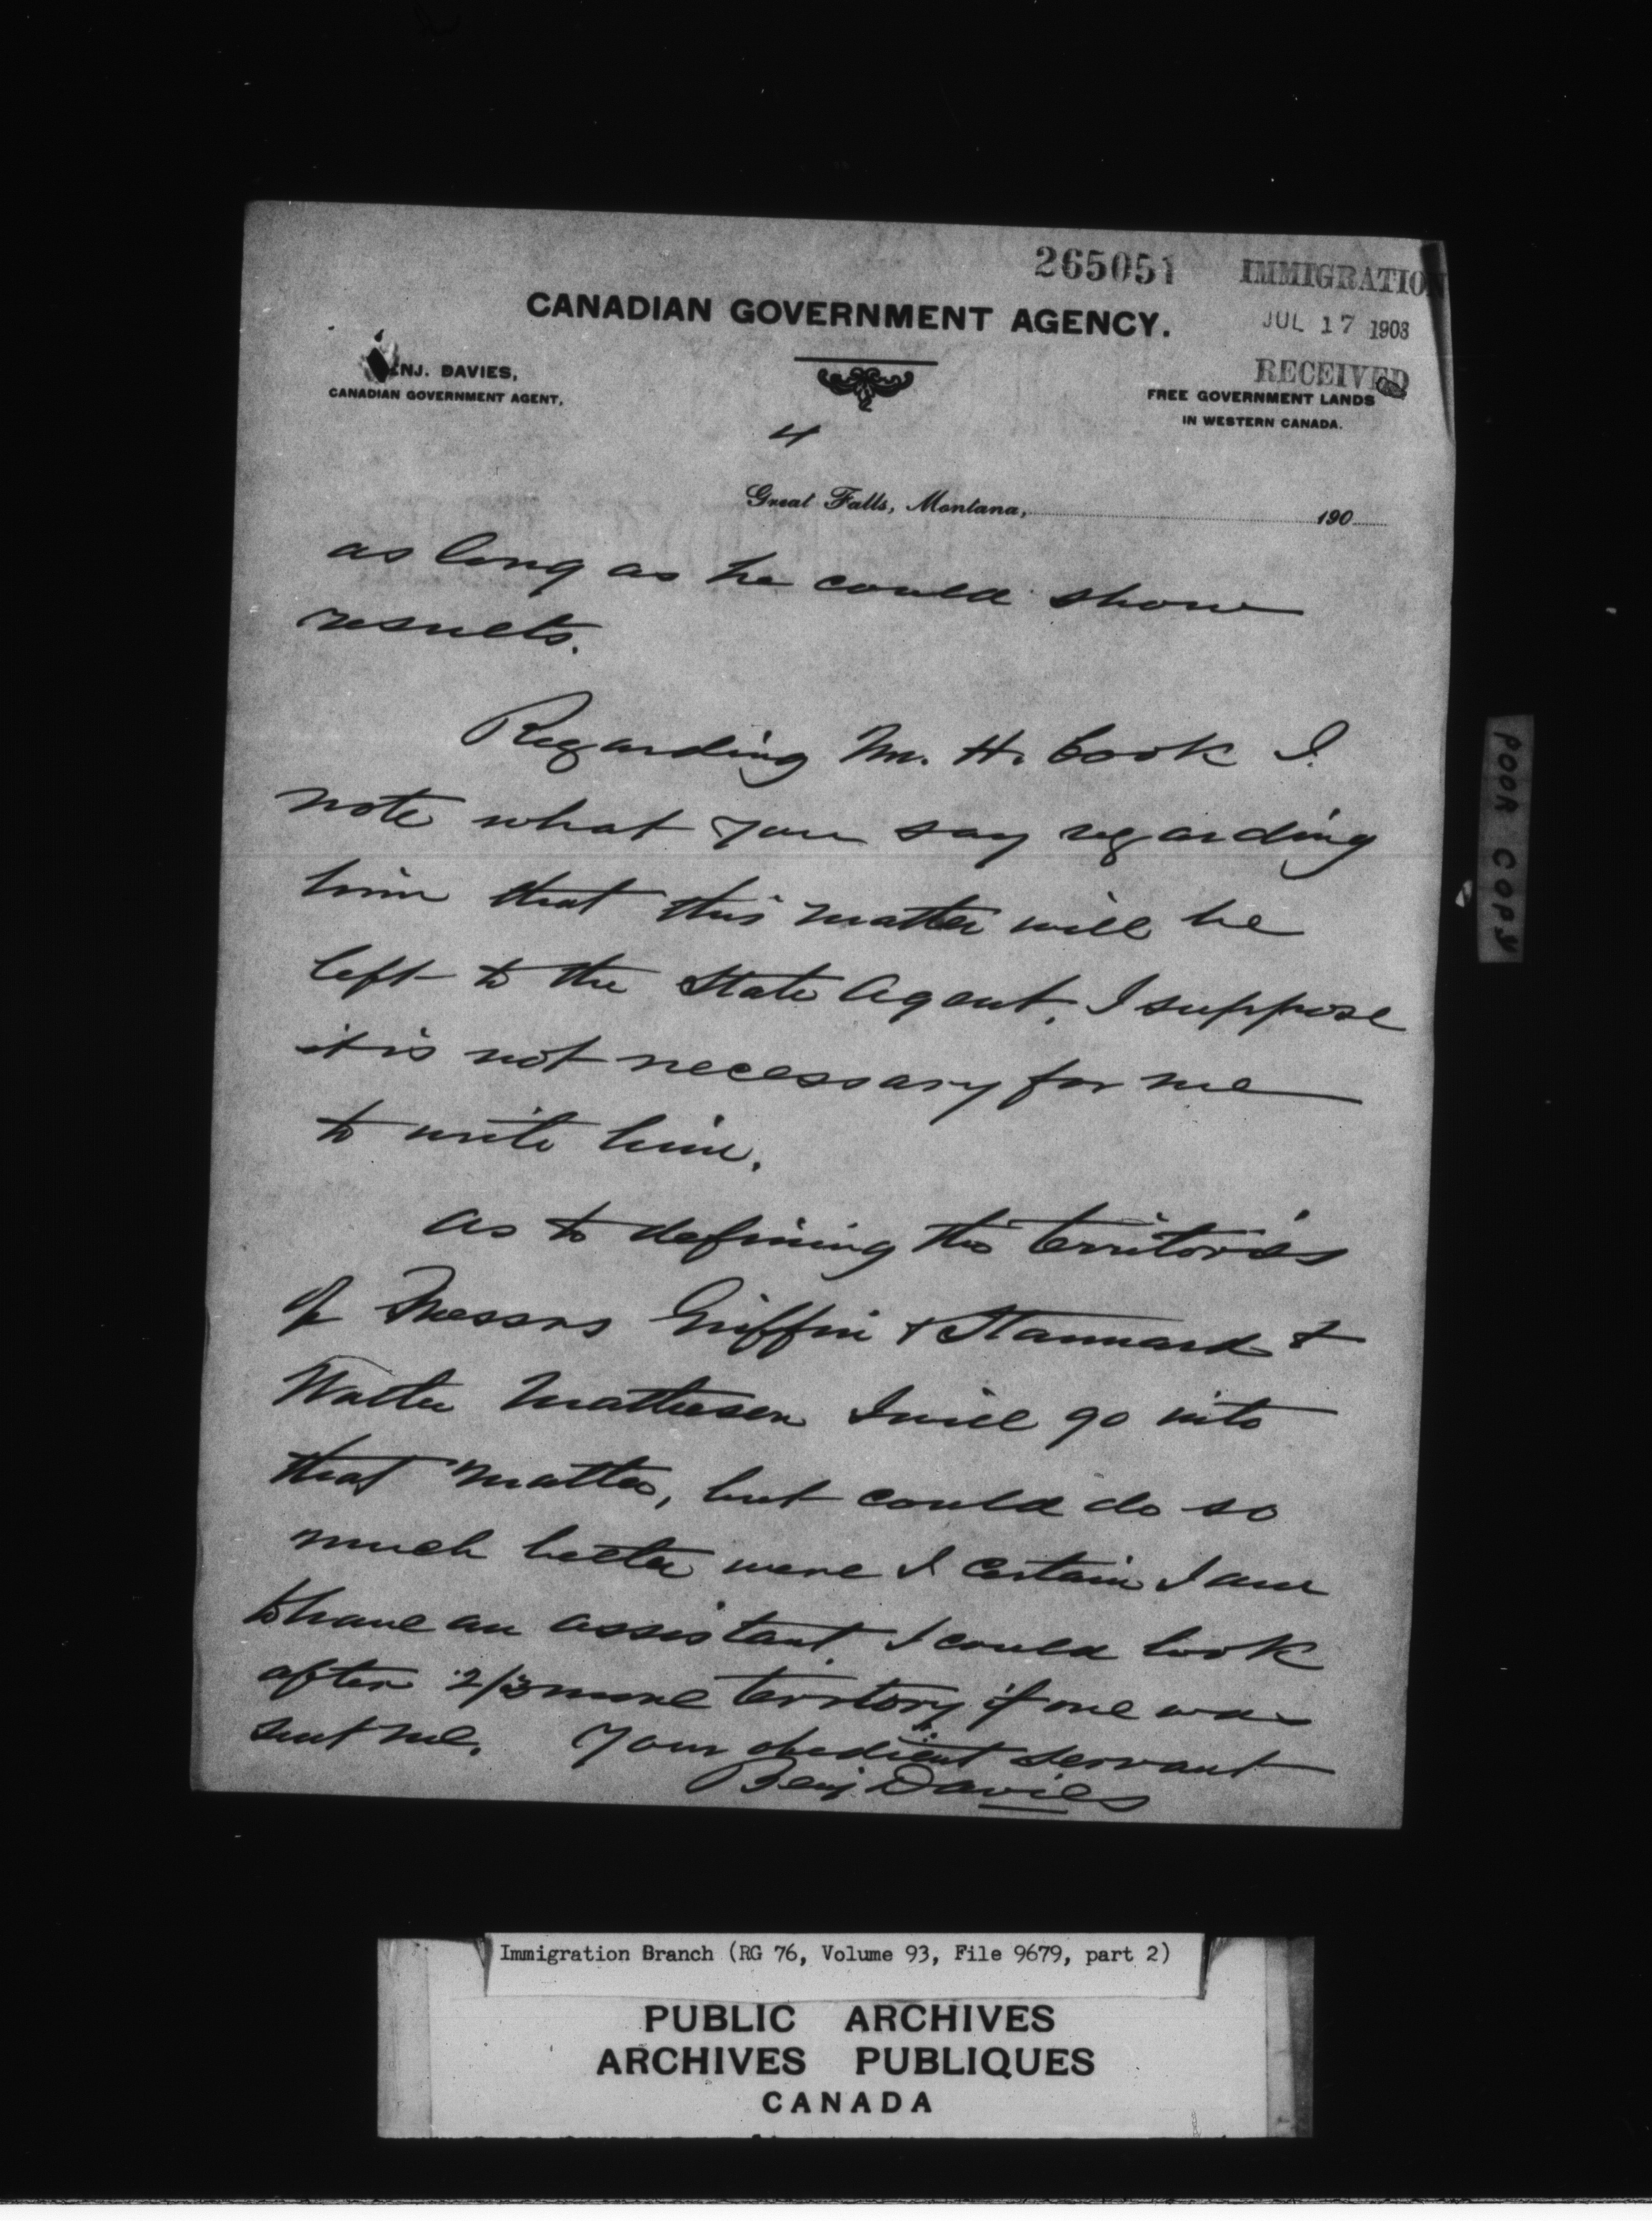 265051
IMMIGRATION
JUL 17 1903
RECEIVED
CANADIAN GOVERNMENT AGENCY.
ENJ. DAVIES,
CANADIAN GOVERNMENT AGENT.
FREE GOVERNMENT LANDS
IN WESTERN CANADA.
4
Great Falls, Montana, 190
as long as he could show
results.
Regarding M. H. Cook I
note what you say regarding
him that this matter will be
left to the State Agent. I suppose
it is not necessary for me
to write him.
as to defining the territories
of Messrs Griffin & Stannard &
Walter Mattesen I will go into
that matter, but could do so
much better were I certain I am
to have an assistant. I could look
after 2/3 more territory if one was
sent me. Your obedient servant
Benj Davies
POOR COPY
Immigration Branch (RG 76, Volume 93, File 9679, part 2)
PUBLIC ARCHIVES
ARCHIVES PUBLIQUES
CANADA